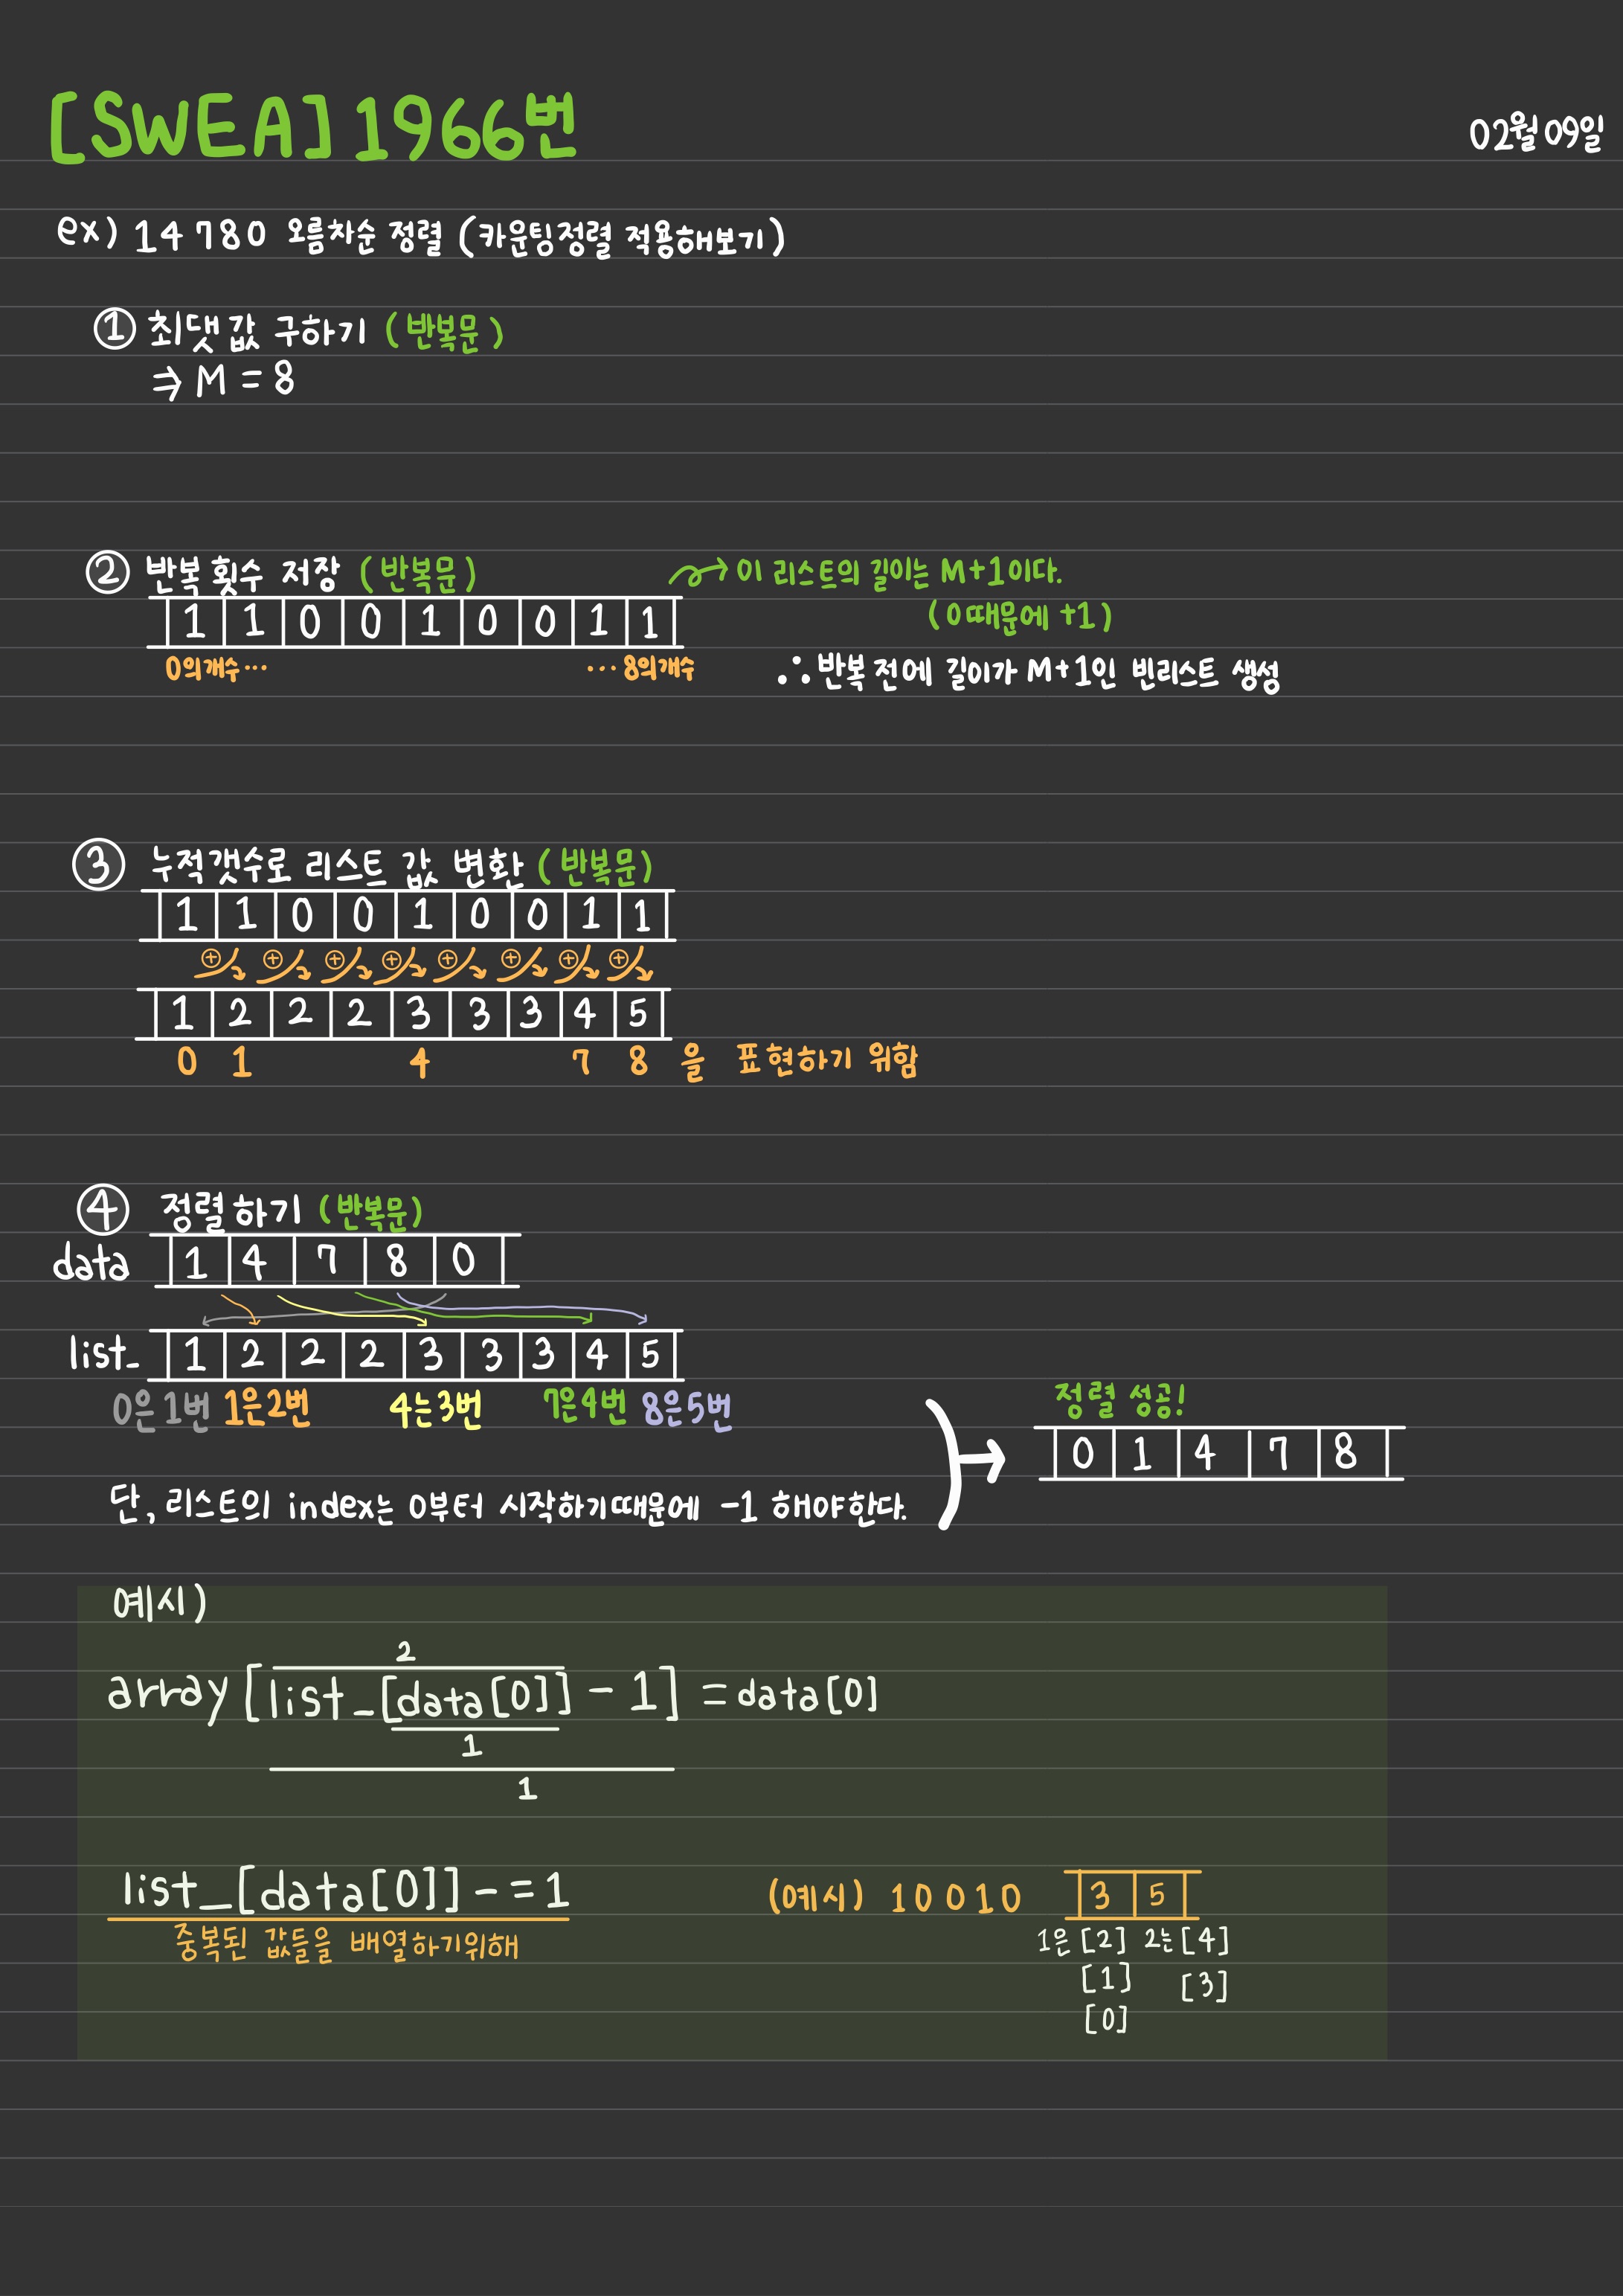 [SWEA] 1966번
02월09일
ex) 1 4 7 8 0 오름차순 정렬 (카운팅정렬 적용해보기)
① 최댓값 구하기 (반복문)
⇒ M = 8
② 반복 횟수 저장 (반복문)
이 리스트의 길이는 M+1이다.
(0때문에 +1)
1 1 0 0 1 0 0 1 1
0의개수… …8의개수
∴ 반복 전에 길이가 M+1인 빈리스트 생성
③ 누적갯수로 리스트 값 변환 (반복문)
1 1 0 0 1 0 0 1 1
⊕ ⊕ ⊕ ⊕ ⊕ ⊕ ⊕ ⊕
1 2 2 2 3 3 3 4 5
0 1 4 7 8 을 표현하기 위함
④ 정렬하기 (반복문)
data 1 4 7 8 0
list_ 1 2 2 2 3 3 3 4 5
0은1번 1은2번 4는3번 7은4번 8은5번
정렬 성공!
0 1 4 7 8
단, 리스트의 index는 0부터 시작하기때문에 -1 해야한다.
예시)
2
array[list_[data[0]] - 1] = data[0]
1
1
list_[data[0]] -= 1
중복된 값들을 배열하기위해
(예시) 1 0 0 1 0
3 5
1은 [2] 2는 [4]
[1] [3]
[0]